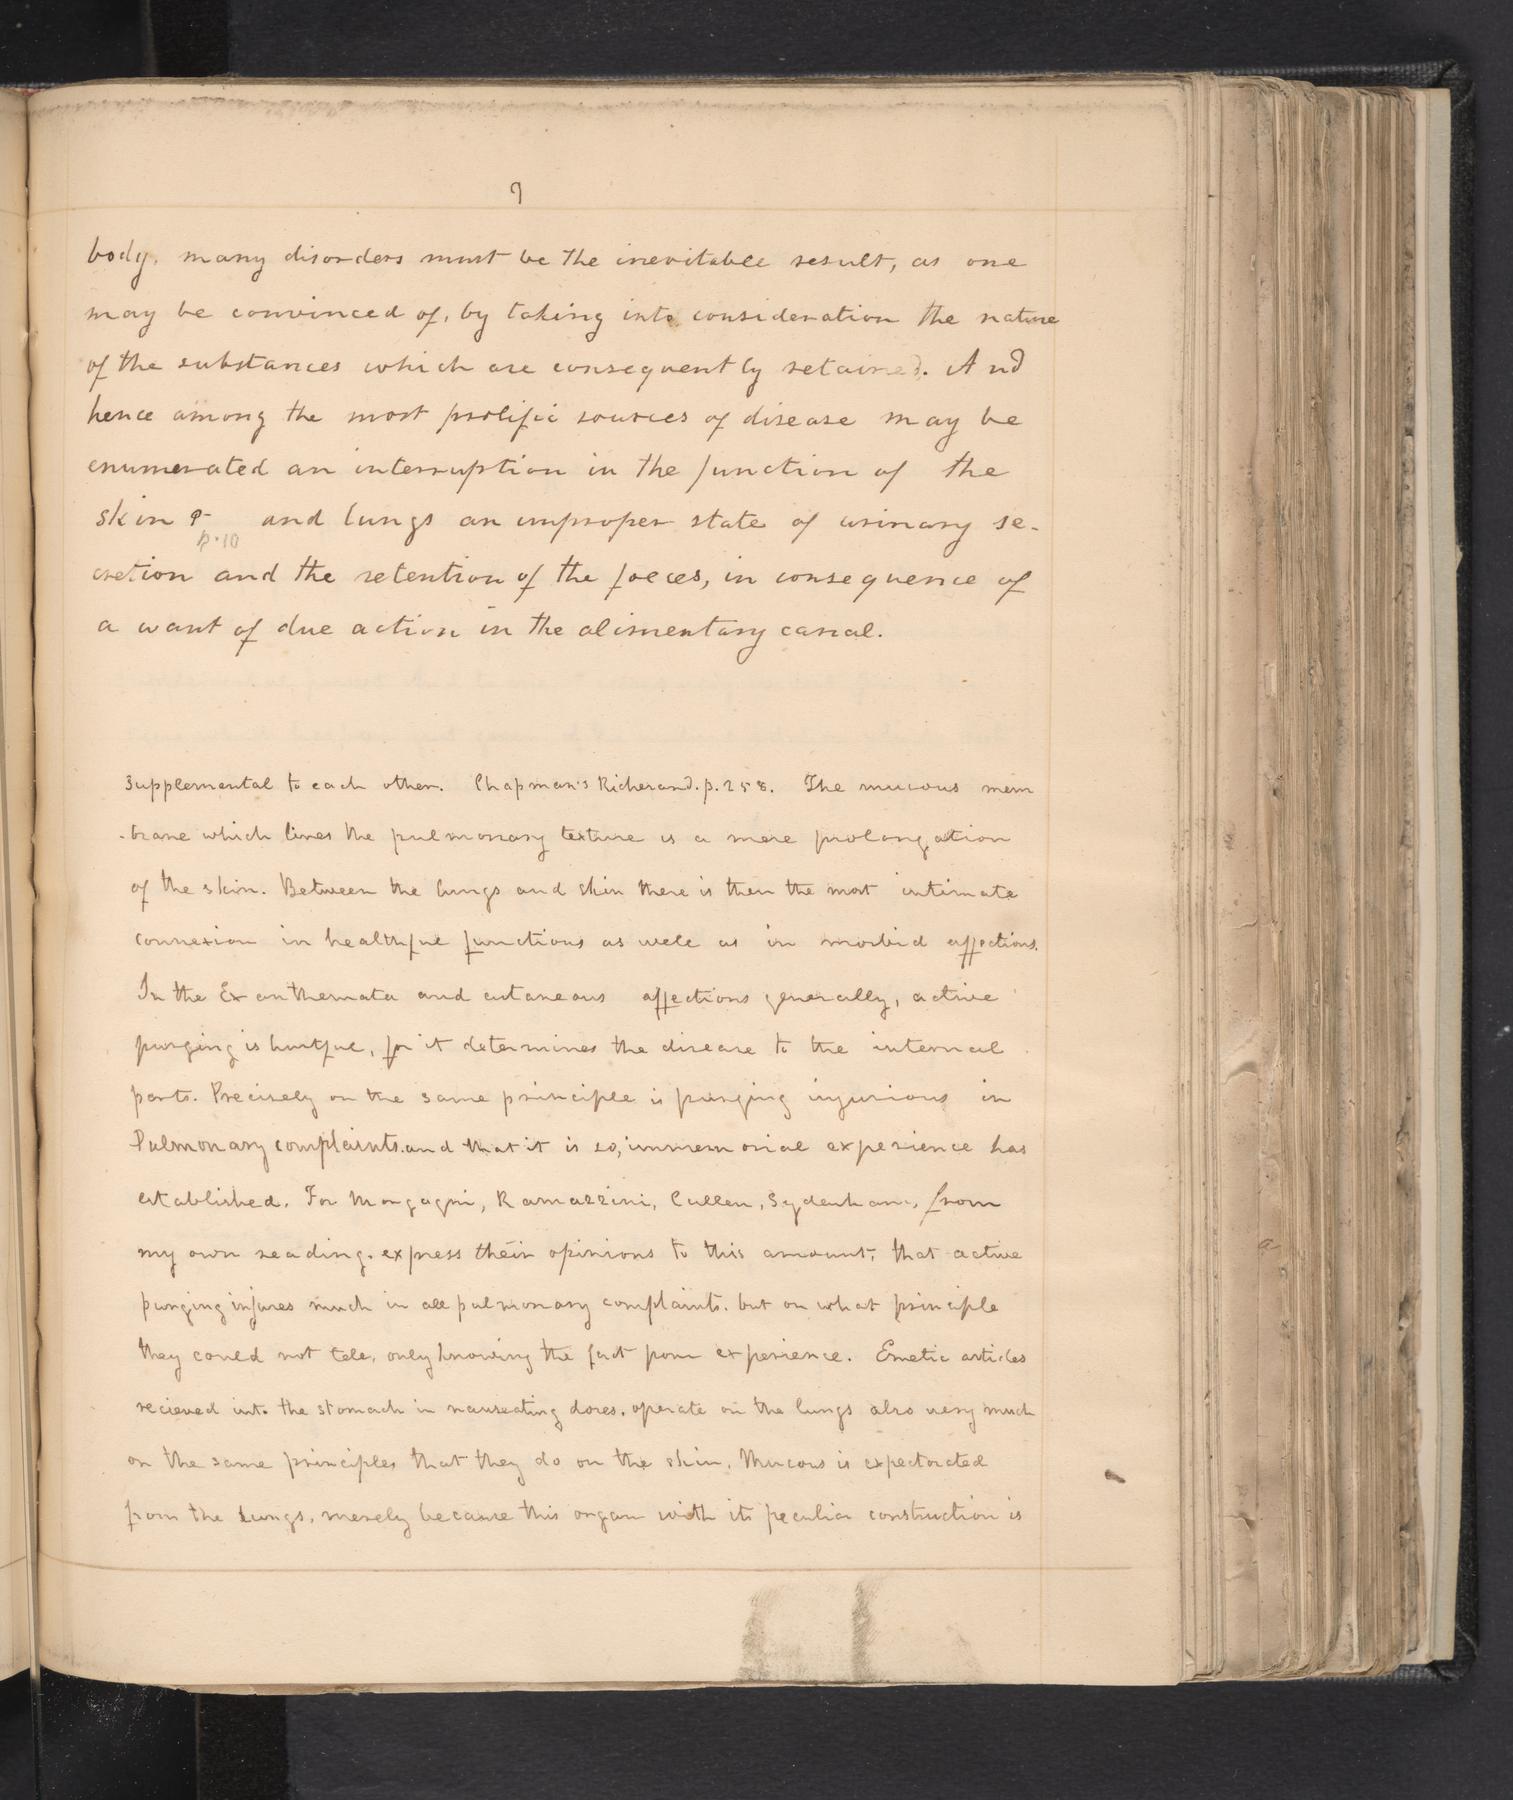 9
body, many disorders must be the inevitable result, as one
may be convinced of, by taking into consideration the nature
of the substances which are consequently retained. And
hence among the most prolific sources of disease may be
enumerated an interruption in the function of the
skin and lungs an improper state of urinary se-
p. 10
cretion and the retention of the foeces, in consequence of
a want of due action in the alimentary canal.
supplemental to each other. Chapman's Richerand. p. 258. The mucous mem
-brane which lines the pulmonary texture is a mere prolongation
of the skin. Between the lungs and skin there is then the most intimate
connexion in healthful functions as well as in morbid affections.
In the Exanthemata and cutaneous affections generally, active
purging is hurtful, for it determines the disease to the internal
parts. Precisely on the same principle is purging injurious in
Pulmonary complaints. and that it is so, immemorial experience has
established. For Morgagni, Ramazzini, Cullen, Sydenham, from
my own reading. express their opinions to this amount, that active
purging injures much in all pulmonary complaints. but on what principle
they could not tell, only knowing the fact from experience. Emetic articles
recieved into the stomach in nauseating doses, operate on the lungs also very much
on the same principles that they do on the skin. Mucous is expectorated
from the Lungs, merely because this organ with its peculiar construction is